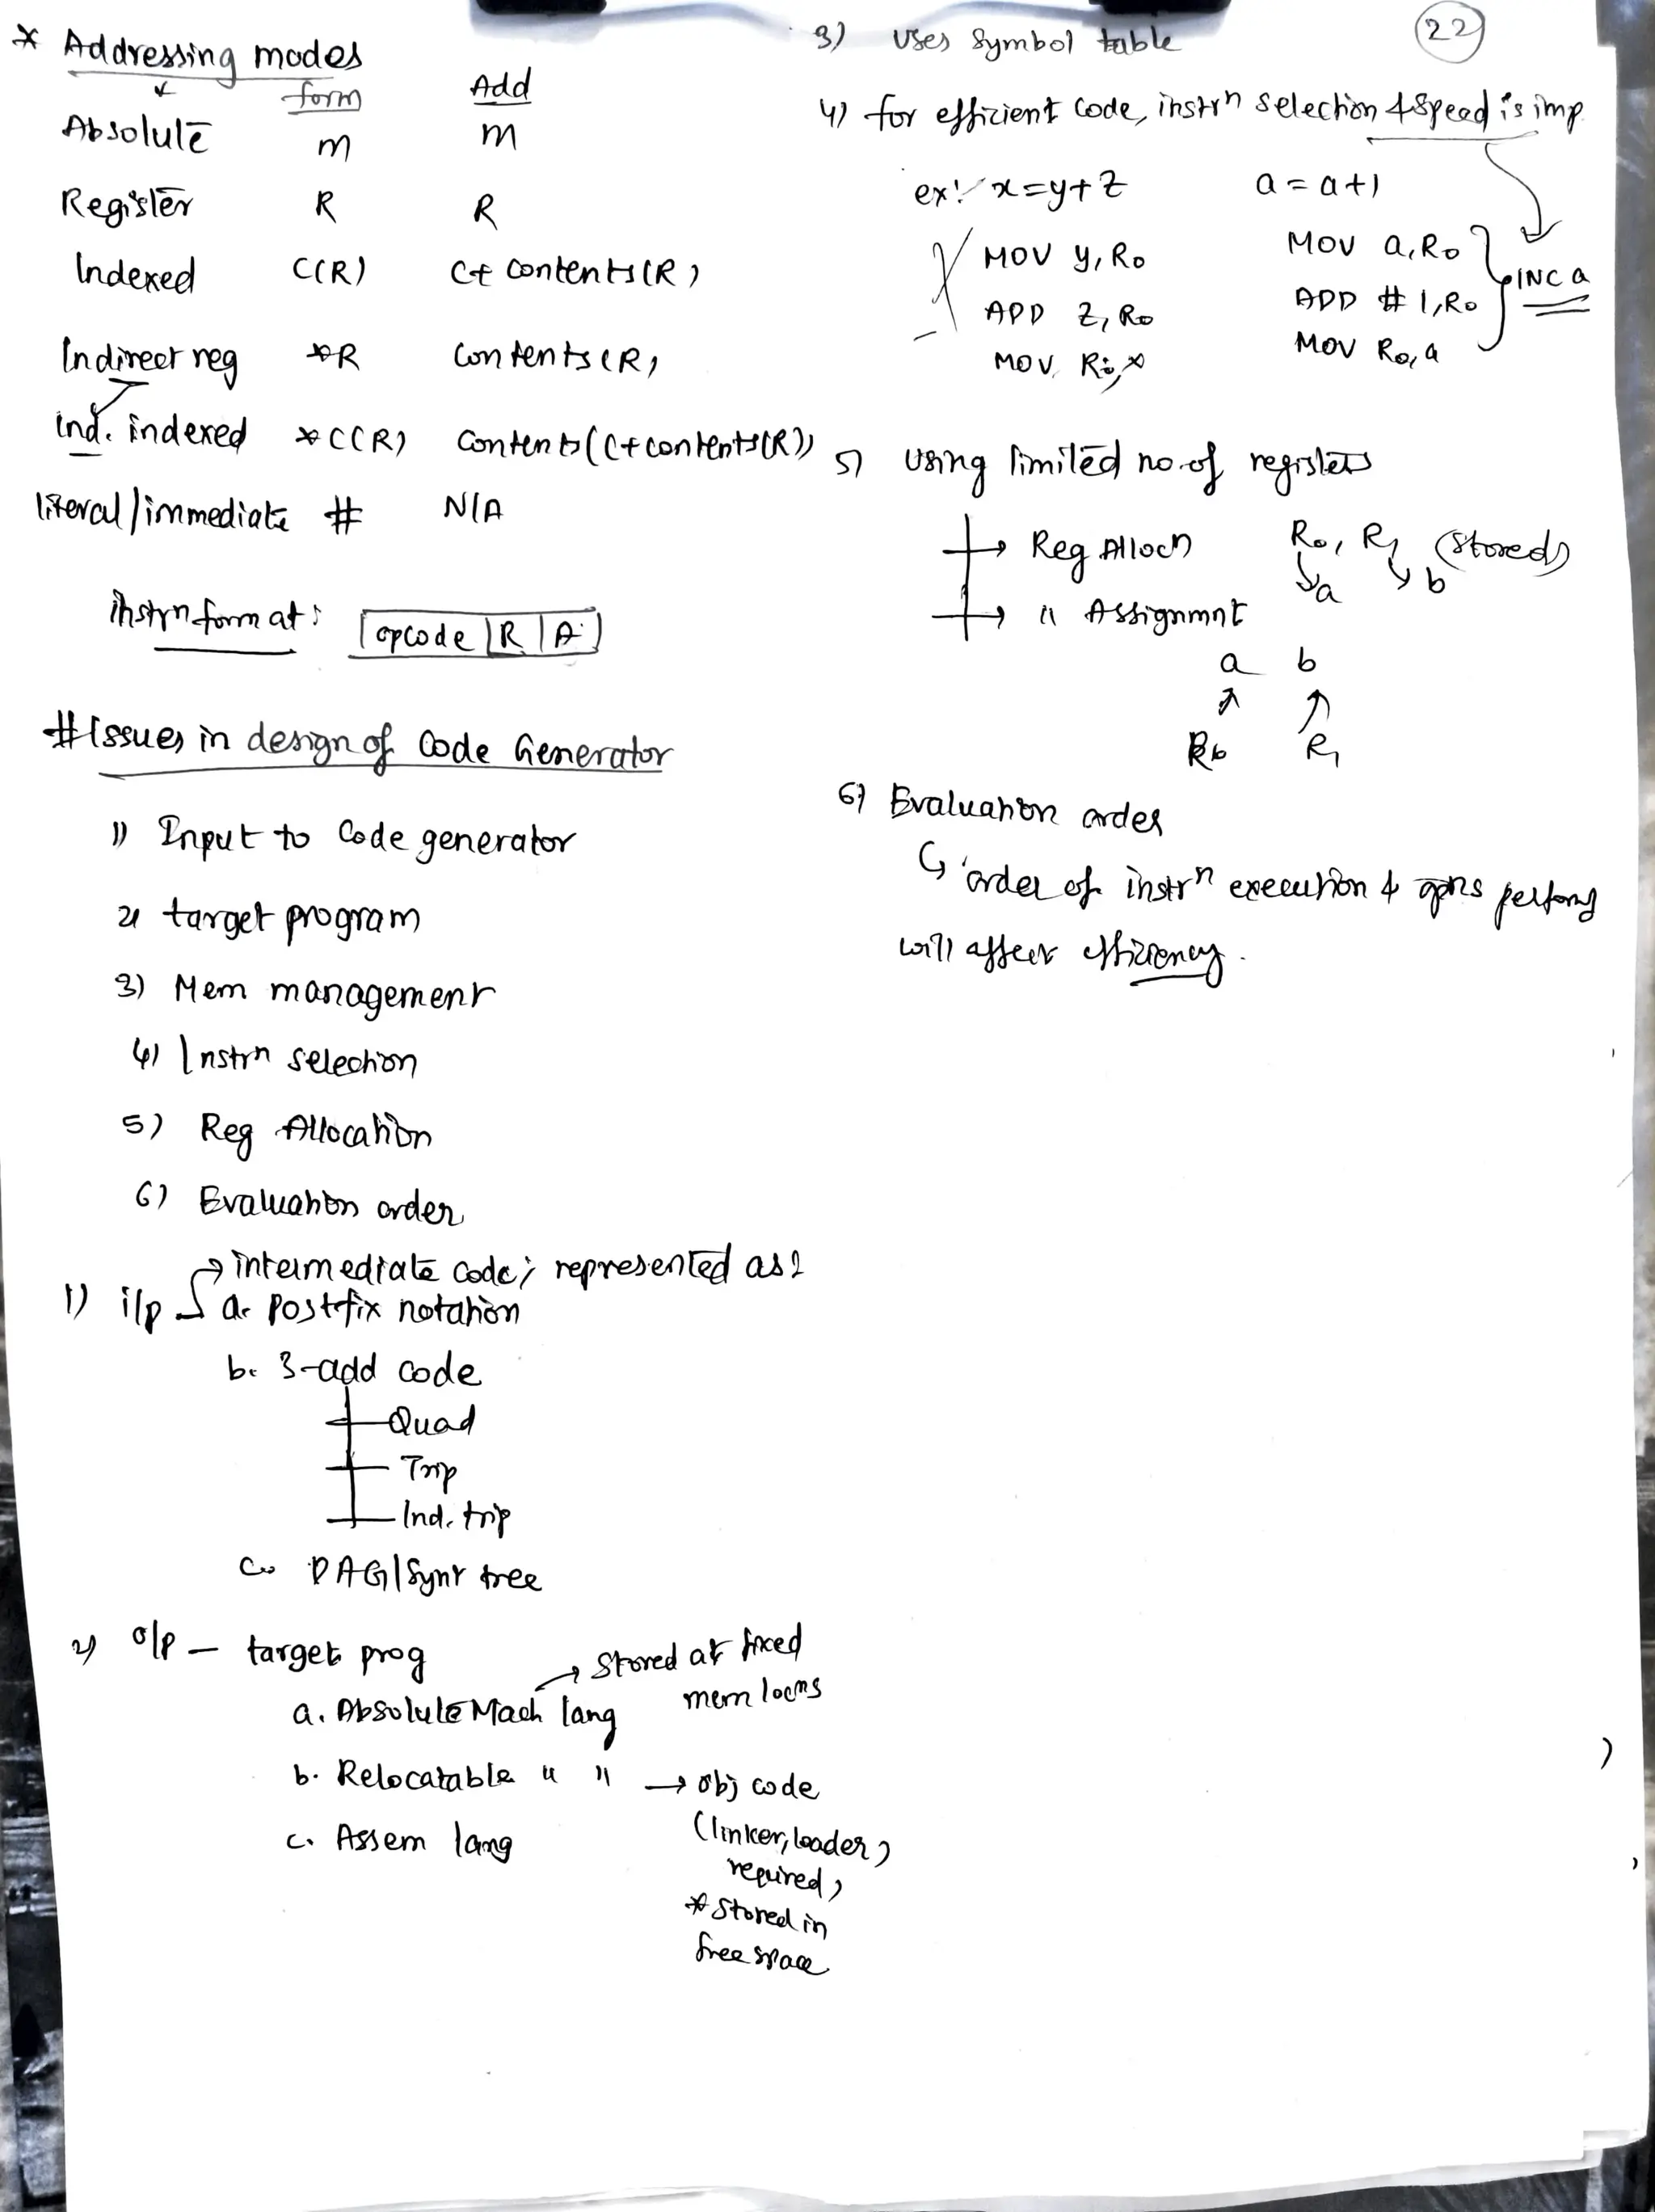 * Addressing modes
form Add
Absolute m m
Register R R
Indexed C(R) C+ contents(R)
Indirect reg *R contents(R)
Ind. indexed *C(R) contents(C+contents(R))
literal/immediate # N/A
instrn format: opcode | R | A
# Issues in design of Code Generator
1) Input to Code generator
2) target program
3) Mem management
4) Instrn selection
5) Reg Allocation
6) Evaluation order
1) i/p → intermediate code; represented as:
a. Postfix notation
b. 3-add code
Quad
Trip
Ind. trip
c. DAG/Synt tree
2) o/p — target prog
a. Absolute Mach lang → Stored at fixed
mem locns
b. Relocatable " " → obj code
(linker, loader)
required,
* Stored in
free space
c. Assem lang
22
3) Uses Symbol table
4) for efficient code, instrn selection & speed is imp
ex: x=y+z a=a+1
MOV y, R0 MOV a, R0
ADD z, R0 ADD #1, R0
MOV R0, x MOV R0, a
INC a
5) Using limited no. of registers
→ Reg Allocn R0, R1 (stored)
a b
→ " Assignmnt
a b
R0 R1
6) Evaluation order
↳ order of instrn execution & opns performg
will affect efficiency.